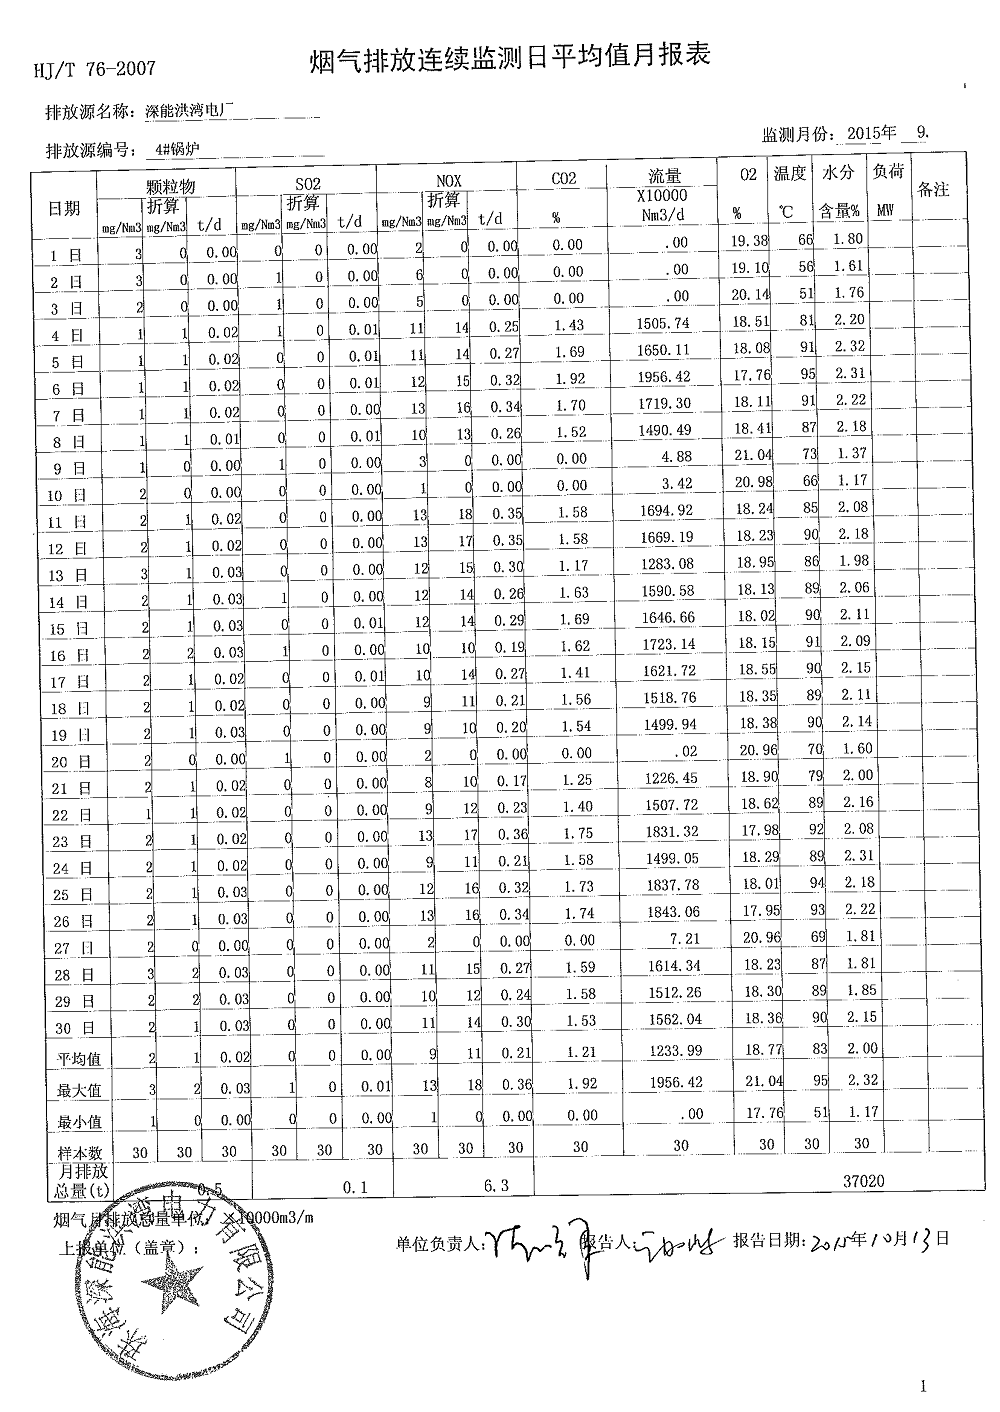 烟气排放连续监测日平均值月报表
HJ/T 76-2007
排放源名称: 深能洪湾电厂
排放源编号: 4#锅炉
监测月份: 2015年 9.
日期 颗粒物 SO2 NOX CO2 流量 O2 温度 水分 负荷 备注
mg/Nm3 折算mg/Nm3 t/d mg/Nm3 折算mg/Nm3 t/d mg/Nm3 折算mg/Nm3 t/d % X10000 Nm3/d % ℃ 含量% MW
1 日 3 0 0.00 0 0 0.00 2 0 0.00 0.00 .00 19.38 66 1.80
2 日 3 0 0.00 1 0 0.00 6 0 0.00 0.00 .00 19.10 56 1.61
3 日 2 0 0.00 1 0 0.00 5 0 0.00 0.00 .00 20.14 51 1.76
4 日 1 1 0.02 1 0 0.01 11 14 0.25 1.43 1505.74 18.51 81 2.20
5 日 1 1 0.02 0 0 0.01 11 14 0.27 1.69 1650.11 18.08 91 2.32
6 日 1 1 0.02 0 0 0.01 12 15 0.32 1.92 1956.42 17.76 95 2.31
7 日 1 1 0.02 0 0 0.00 13 16 0.34 1.70 1719.30 18.11 91 2.22
8 日 1 1 0.01 0 0 0.01 10 13 0.26 1.52 1490.49 18.41 87 2.18
9 日 1 0 0.00 1 0 0.00 3 0 0.00 0.00 4.88 21.04 73 1.37
10 日 2 0 0.00 0 0 0.00 1 0 0.00 0.00 3.42 20.98 66 1.17
11 日 2 1 0.02 0 0 0.00 13 18 0.35 1.58 1694.92 18.24 85 2.08
12 日 2 1 0.02 0 0 0.00 13 17 0.35 1.58 1669.19 18.23 90 2.18
13 日 3 1 0.03 0 0 0.00 12 15 0.30 1.17 1283.08 18.95 86 1.98
14 日 2 1 0.03 1 0 0.00 12 14 0.26 1.63 1590.58 18.13 89 2.06
15 日 2 1 0.03 0 0 0.01 12 14 0.29 1.69 1646.66 18.02 90 2.11
16 日 2 2 0.03 1 0 0.00 10 10 0.19 1.62 1723.14 18.15 91 2.09
17 日 2 1 0.02 0 0 0.01 10 14 0.27 1.41 1621.72 18.55 90 2.15
18 日 2 1 0.02 0 0 0.00 9 11 0.21 1.56 1518.76 18.35 89 2.11
19 日 2 1 0.03 0 0 0.00 9 10 0.20 1.54 1499.94 18.38 90 2.14
20 日 2 0 0.00 1 0 0.00 2 0 0.00 0.00 .02 20.96 70 1.60
21 日 2 1 0.02 0 0 0.00 8 10 0.17 1.25 1226.45 18.90 79 2.00
22 日 1 1 0.02 0 0 0.00 9 12 0.23 1.40 1507.72 18.62 89 2.16
23 日 2 1 0.02 0 0 0.00 13 17 0.36 1.75 1831.32 17.98 92 2.08
24 日 2 1 0.02 0 0 0.00 9 11 0.21 1.58 1499.05 18.29 89 2.31
25 日 2 1 0.03 0 0 0.00 12 16 0.32 1.73 1837.78 18.01 94 2.18
26 日 2 1 0.03 0 0 0.00 13 16 0.34 1.74 1843.06 17.95 93 2.22
27 日 2 0 0.00 0 0 0.00 2 0 0.00 0.00 7.21 20.96 69 1.81
28 日 3 2 0.03 0 0 0.00 11 15 0.27 1.59 1614.34 18.23 87 1.81
29 日 2 2 0.03 0 0 0.00 10 12 0.24 1.58 1512.26 18.30 89 1.85
30 日 2 1 0.03 0 0 0.00 11 14 0.30 1.53 1562.04 18.36 90 2.15
平均值 2 1 0.02 0 0 0.00 9 11 0.21 1.21 1233.99 18.77 83 2.00
最大值 3 2 0.03 1 0 0.01 13 18 0.36 1.92 1956.42 21.04 95 2.32
最小值 1 0 0.00 0 0 0.00 1 0 0.00 0.00 .00 17.76 51 1.17
样本数 30 30 30 30 30 30 30 30 30 30 30 30 30 30
月排放总量(t) 0.5 0.1 6.3 37020
烟气月排放总量单位: 10000m3/m
上报单位（盖章）: 单位负责人: 报告人: 报告日期: 2015年10月13日
珠海深能洪湾电力有限公司
1